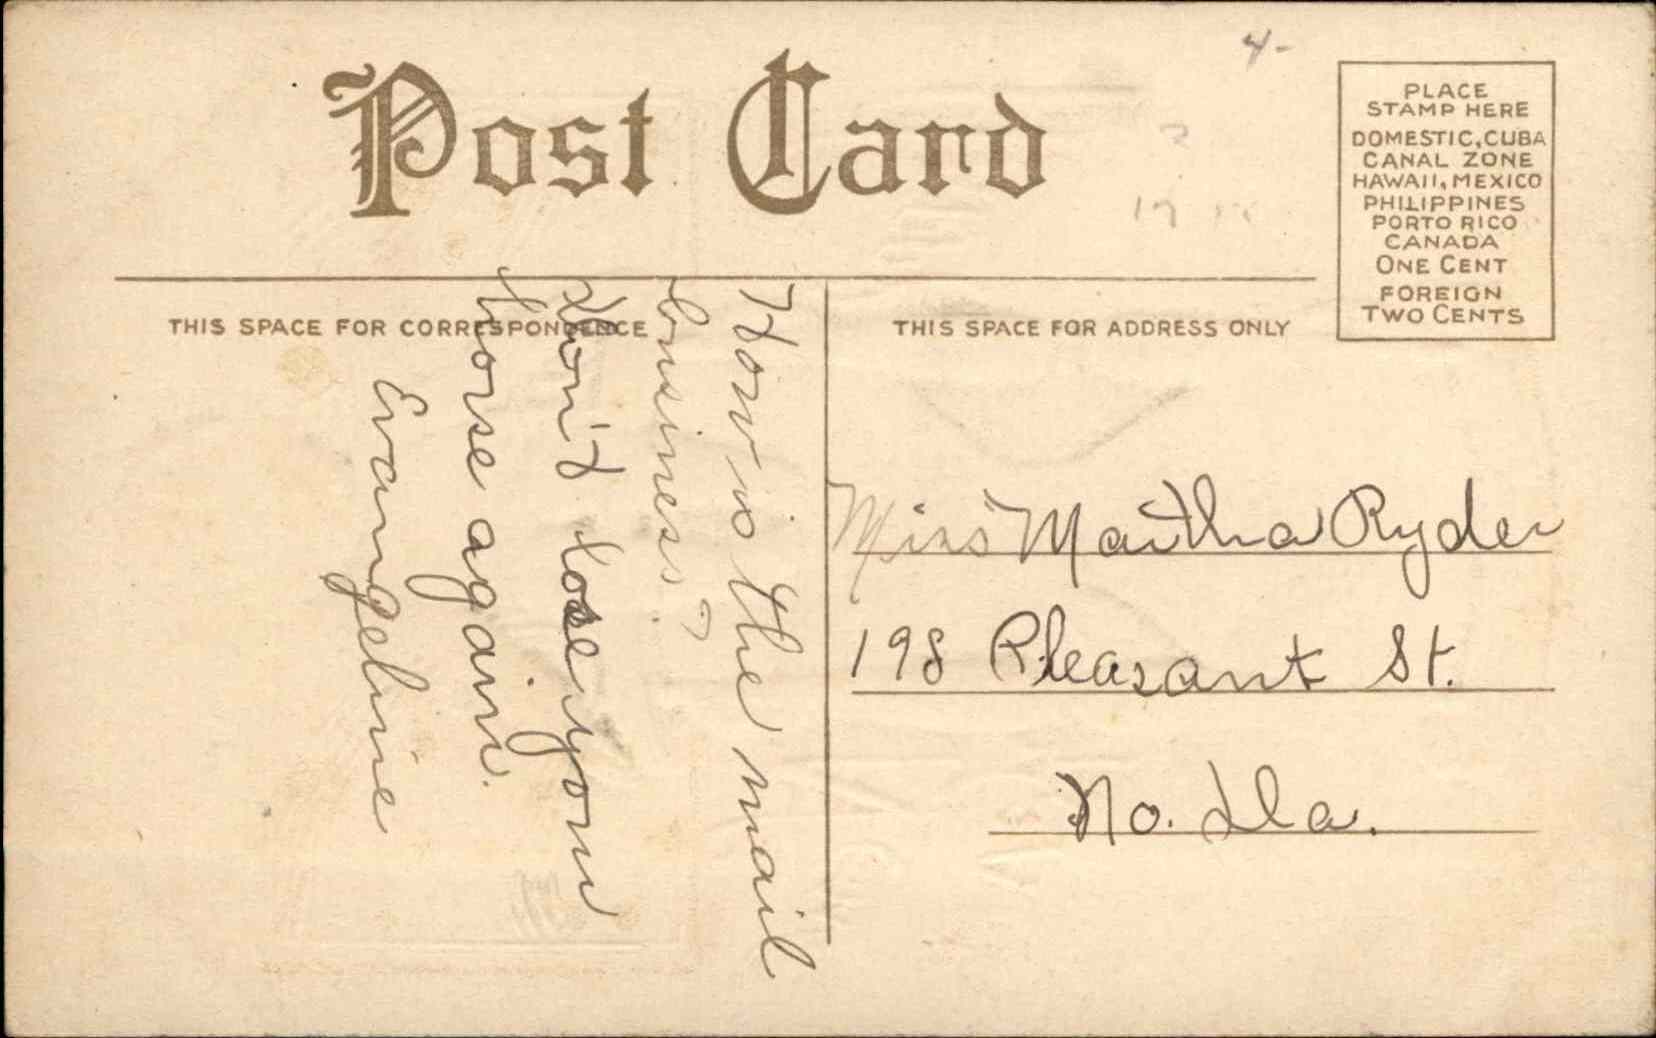 4-
Post Card
PLACE
STAMP HERE
DOMESTIC, CUBA
CANAL ZONE
HAWAII, MEXICO
PHILIPPINES
PORTO RICO
CANADA
ONE CENT
FOREIGN
TWO CENTS
THIS SPACE FOR CORRESPONDENCE
THIS SPACE FOR ADDRESS ONLY
How is the mail
business?
Don't lose your
horse again.
Evangeline
Miss Martha Ryder
198 Pleasant St.
No.